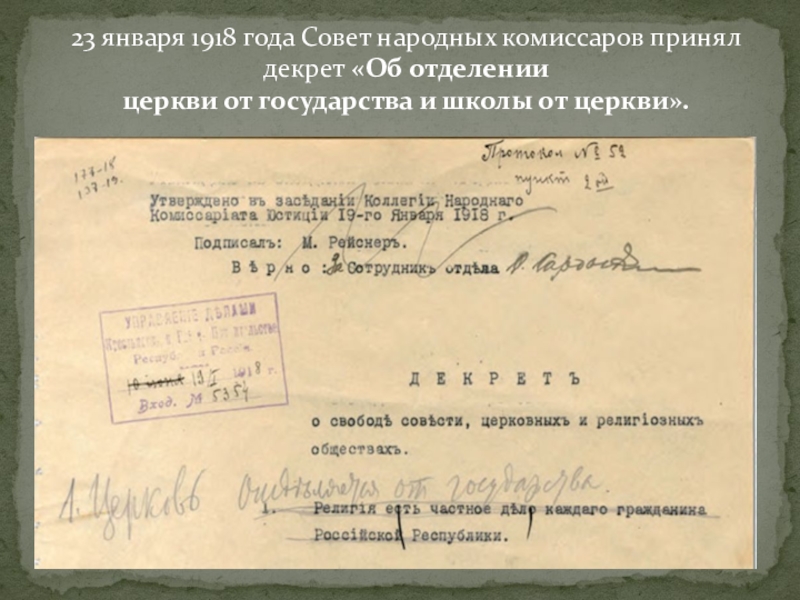 23 января 1918 года Совет народных комиссаров принял
декрет «Об отделении
церкви от государства и школы от церкви».
Протокол № 52
пункт 2 ой
177-18
Утверждено въ засѣданіи Коллегіи Народнаго
Комиссаріата Юстиціи 19-го Января 1918 г.
Подписалъ: М. Рейснеръ.
Вѣрно: Сотрудникъ отдѣла
УПРАВЛЕНІЕ ДѢЛАМИ
Республ Россіи
1918 г.
Вход. № 5354
ДЕКРЕТЪ
о свободѣ совѣсти, церковныхъ и религіозныхъ
обществахъ.
1. Церковь отдѣляется от государства.
1. Религія есть частное дѣло каждаго гражданина
Россійской Республики.